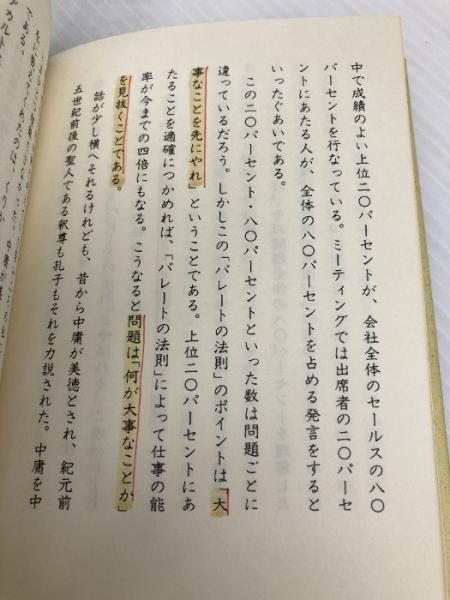 中で成績のよい上位二〇パーセントが、会社全体のセールスの八〇
パーセントを行なっている。ミーティングでは出席者の二〇パーセ
ントにあたる人が、全体の八〇パーセントを占める発言をすると
いったぐあいである。
この二〇パーセント・八〇パーセントといった数は問題ごとに
違っているだろう。しかしこの「パレートの法則」のポイントは「大
事なことを先にやれ」ということである。上位二〇パーセントにあ
たることを適確につかめれば、「パレートの法則」によって仕事の能
率が今までの四倍にもなる。こうなると問題は「何が大事なことか」
を見抜くことである。
話が少し横へそれるけれども、昔から中庸が美徳とされ、紀元前
五世紀前後の聖人である釈尊も孔子もそれを力説された。中庸を中